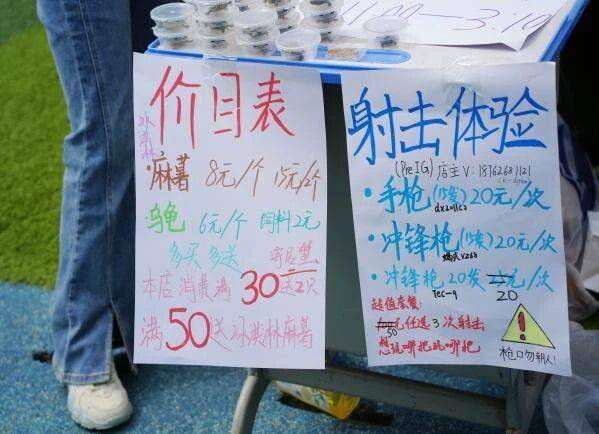 11:00-3:10
价目表
冰淇淋
麻薯 8元/个 15元/2个
乌龟 6元/个 饲料2元
多买多送 寄居蟹
本店消费满30送2只
满50送冰淇林麻薯
射击体验
(PreIG) 店主V: 18762681121
·手枪(15发)20元/次
·冲锋枪(15发)20元/次
·冲锋枪20发 元/次
Tec-9 20
超值套餐:
元任选3次射击
50
想玩哪把玩哪把
枪口勿朝人!